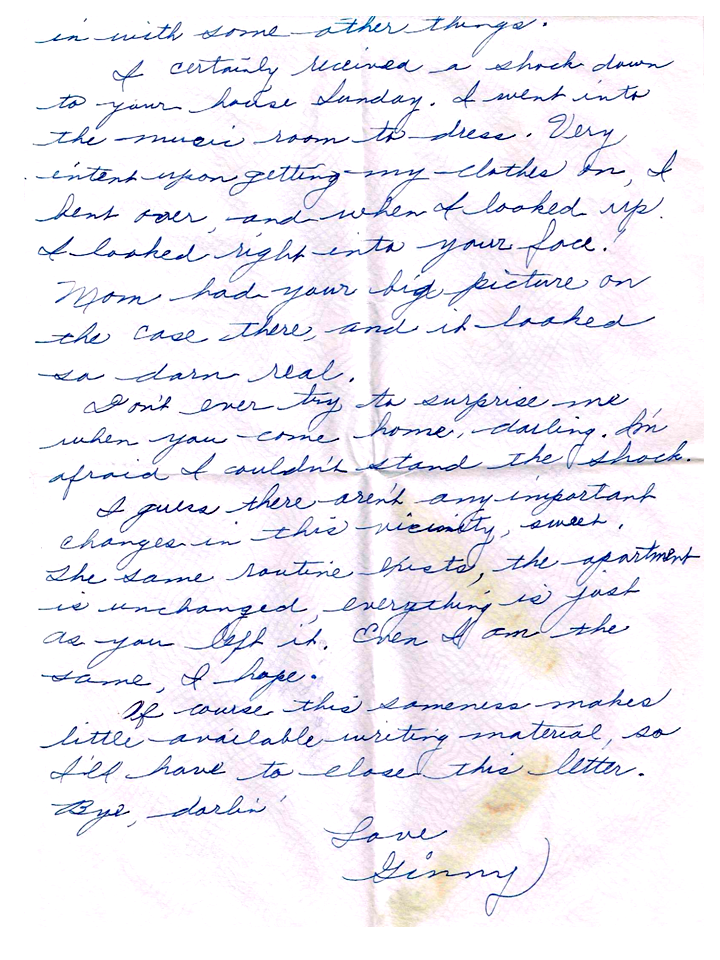 in with some other things.
I certainly received a shock down
to your house Sunday. I went into
the music room to dress. Very
intent upon getting my clothes on, I
bent over, and when I looked up
I looked right into your face!
Mom had your big picture on
the case there, and it looked
so darn real.
Don't ever try to surprise me
when you come home, darling. I'm
afraid I couldn't stand the shock.
I guess there aren't any important
changes in this vicinity, sweet.
The same routine exists, the apartment
is unchanged, everything is just
as you left it. Even I am the
same, I hope.
Of course this sameness makes
little available writing material, so
I'll have to close this letter.
Bye, darlin'
Love
Ginny